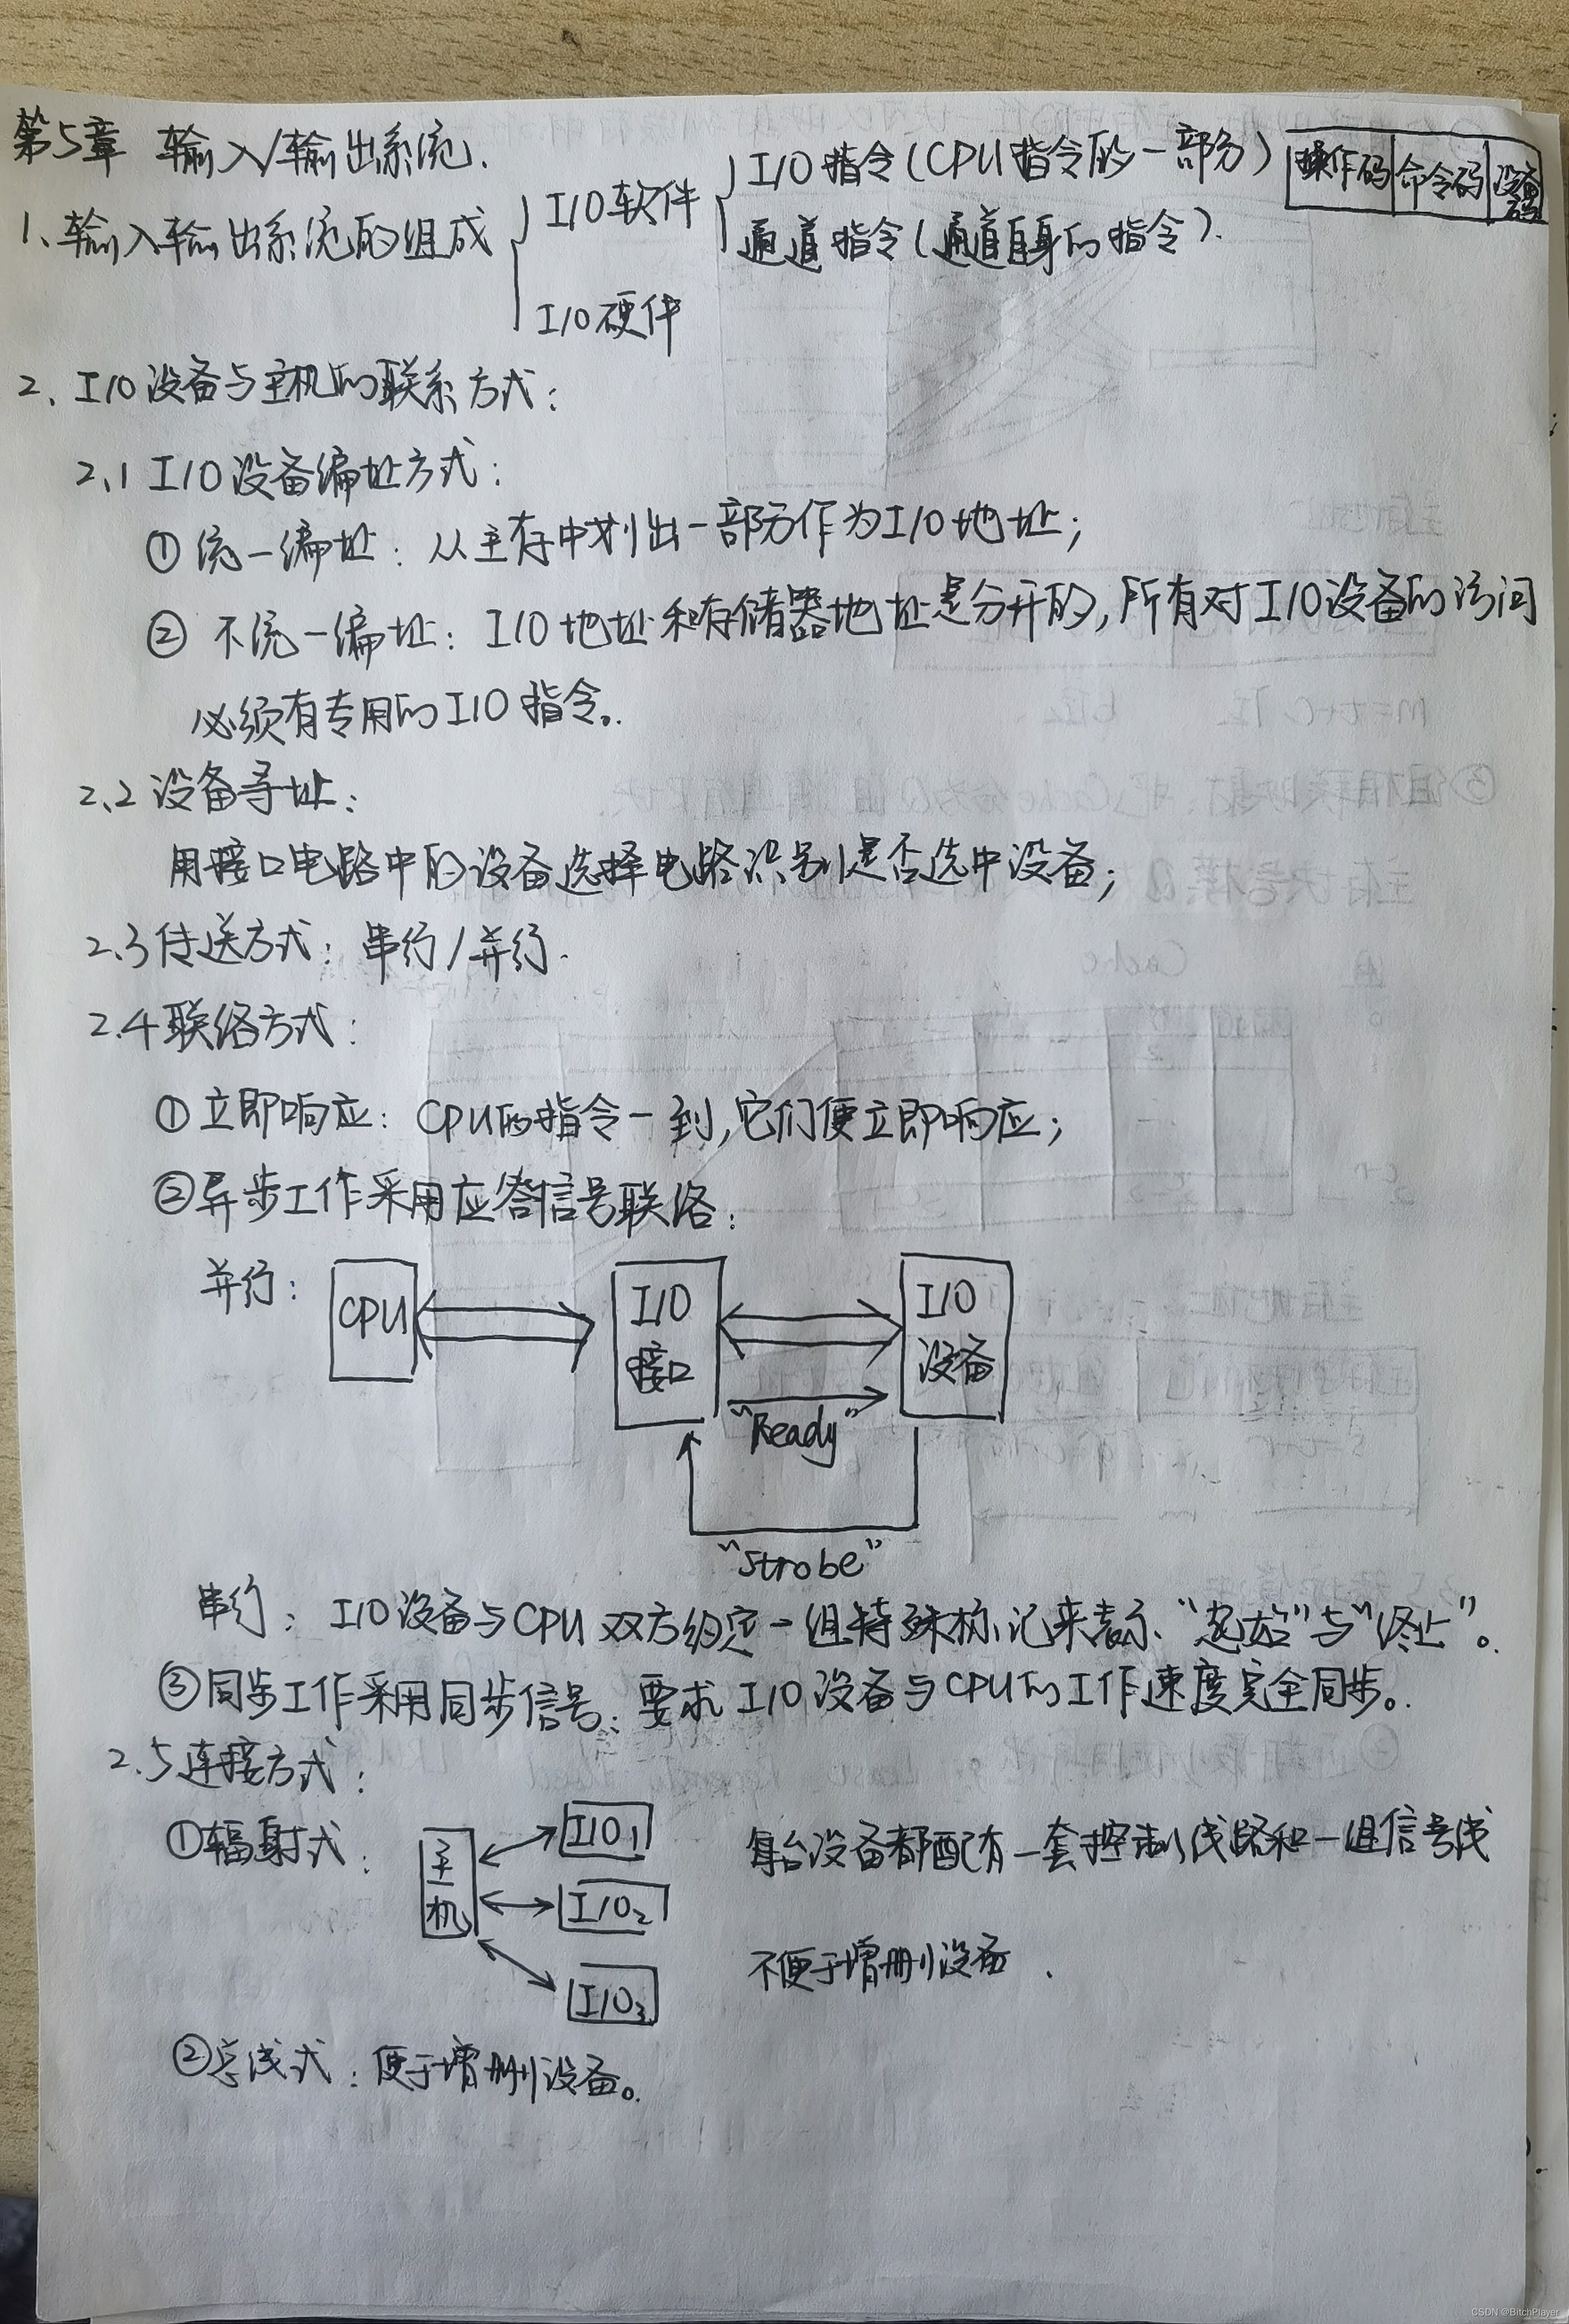 第5章 输入/输出系统.
1、输入输出系统的组成
I/O软件
I/O指令(CPU指令的一部分)
操作码 命令码 设备码
通道指令(通道自身的指令).
I/O硬件
2、I/O设备与主机的联系方式:
2.1 I/O设备编址方式:
①统一编址: 从主存中划出一部分作为I/O地址;
②不统一编址: I/O地址和存储器地址是分开的,所有对I/O设备的访问
必须有专用的I/O指令。
2.2 设备寻址:
用接口电路中的设备选择电路识别是否选中设备;
2.3传送方式: 串行/并行.
2.4联络方式:
①立即响应: CPU的指令一到,它们便立即响应;
②异步工作采用应答信号联络:
并行:
CPU
I/O
接口
I/O
设备
"Ready"
"Strobe"
串行: I/O设备与CPU双方约定一组特殊标记来表示"起始"与"终止"。
③同步工作采用同步信号: 要求I/O设备与CPU的工作速度完全同步。
2.5连接方式:
①辐射式:
主机
I/O1
I/O2
I/O3
每台设备都配有一套控制线路和一组信号线
不便于增删设备.
②总线式: 便于增删设备。
CSDN @BitchPlayer